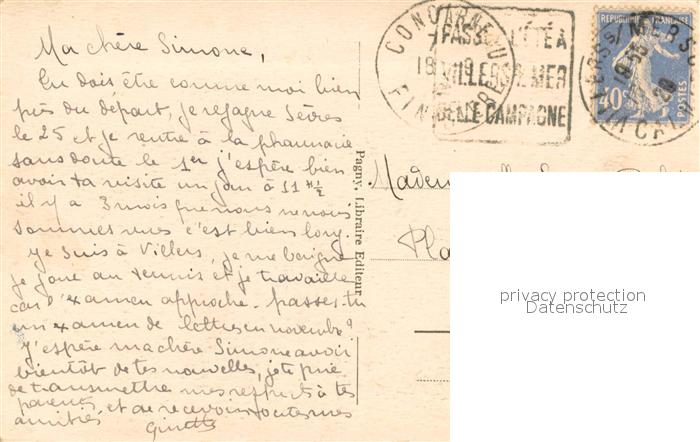 Ma chère Simone,
Tu dois être comme moi bien
près du départ, je regagne Sèvres
le 25 et je rentre à la pharmacie
sans doute le 1er j'espère bien
avoir ta visite un jour à 11 h ½
il y a 3 mois que nous ne nous
sommes vues c'est bien long.
Je suis à Villers, je me baigne
je joue au tennis et je travaille
car l'examen approche. passes-tu
un examen de lettres en novembre?
J'espère ma chère Simone avoir
bientôt de tes nouvelles, je te prie
de transmettre mes respects à tes
parents et de recevoir toutes mes
amitiés
Ginette
Pagny, Libraire Editeur
CONCARNEAU
FINISTERE
PASSEZ L'ÉTÉ À
VILLERS S MER
BELLE CAMPAGNE
REPUBLIQUE FRANÇAISE
40c
POSTES
Mademoiselle
Pla
privacy protection
Datenschutz